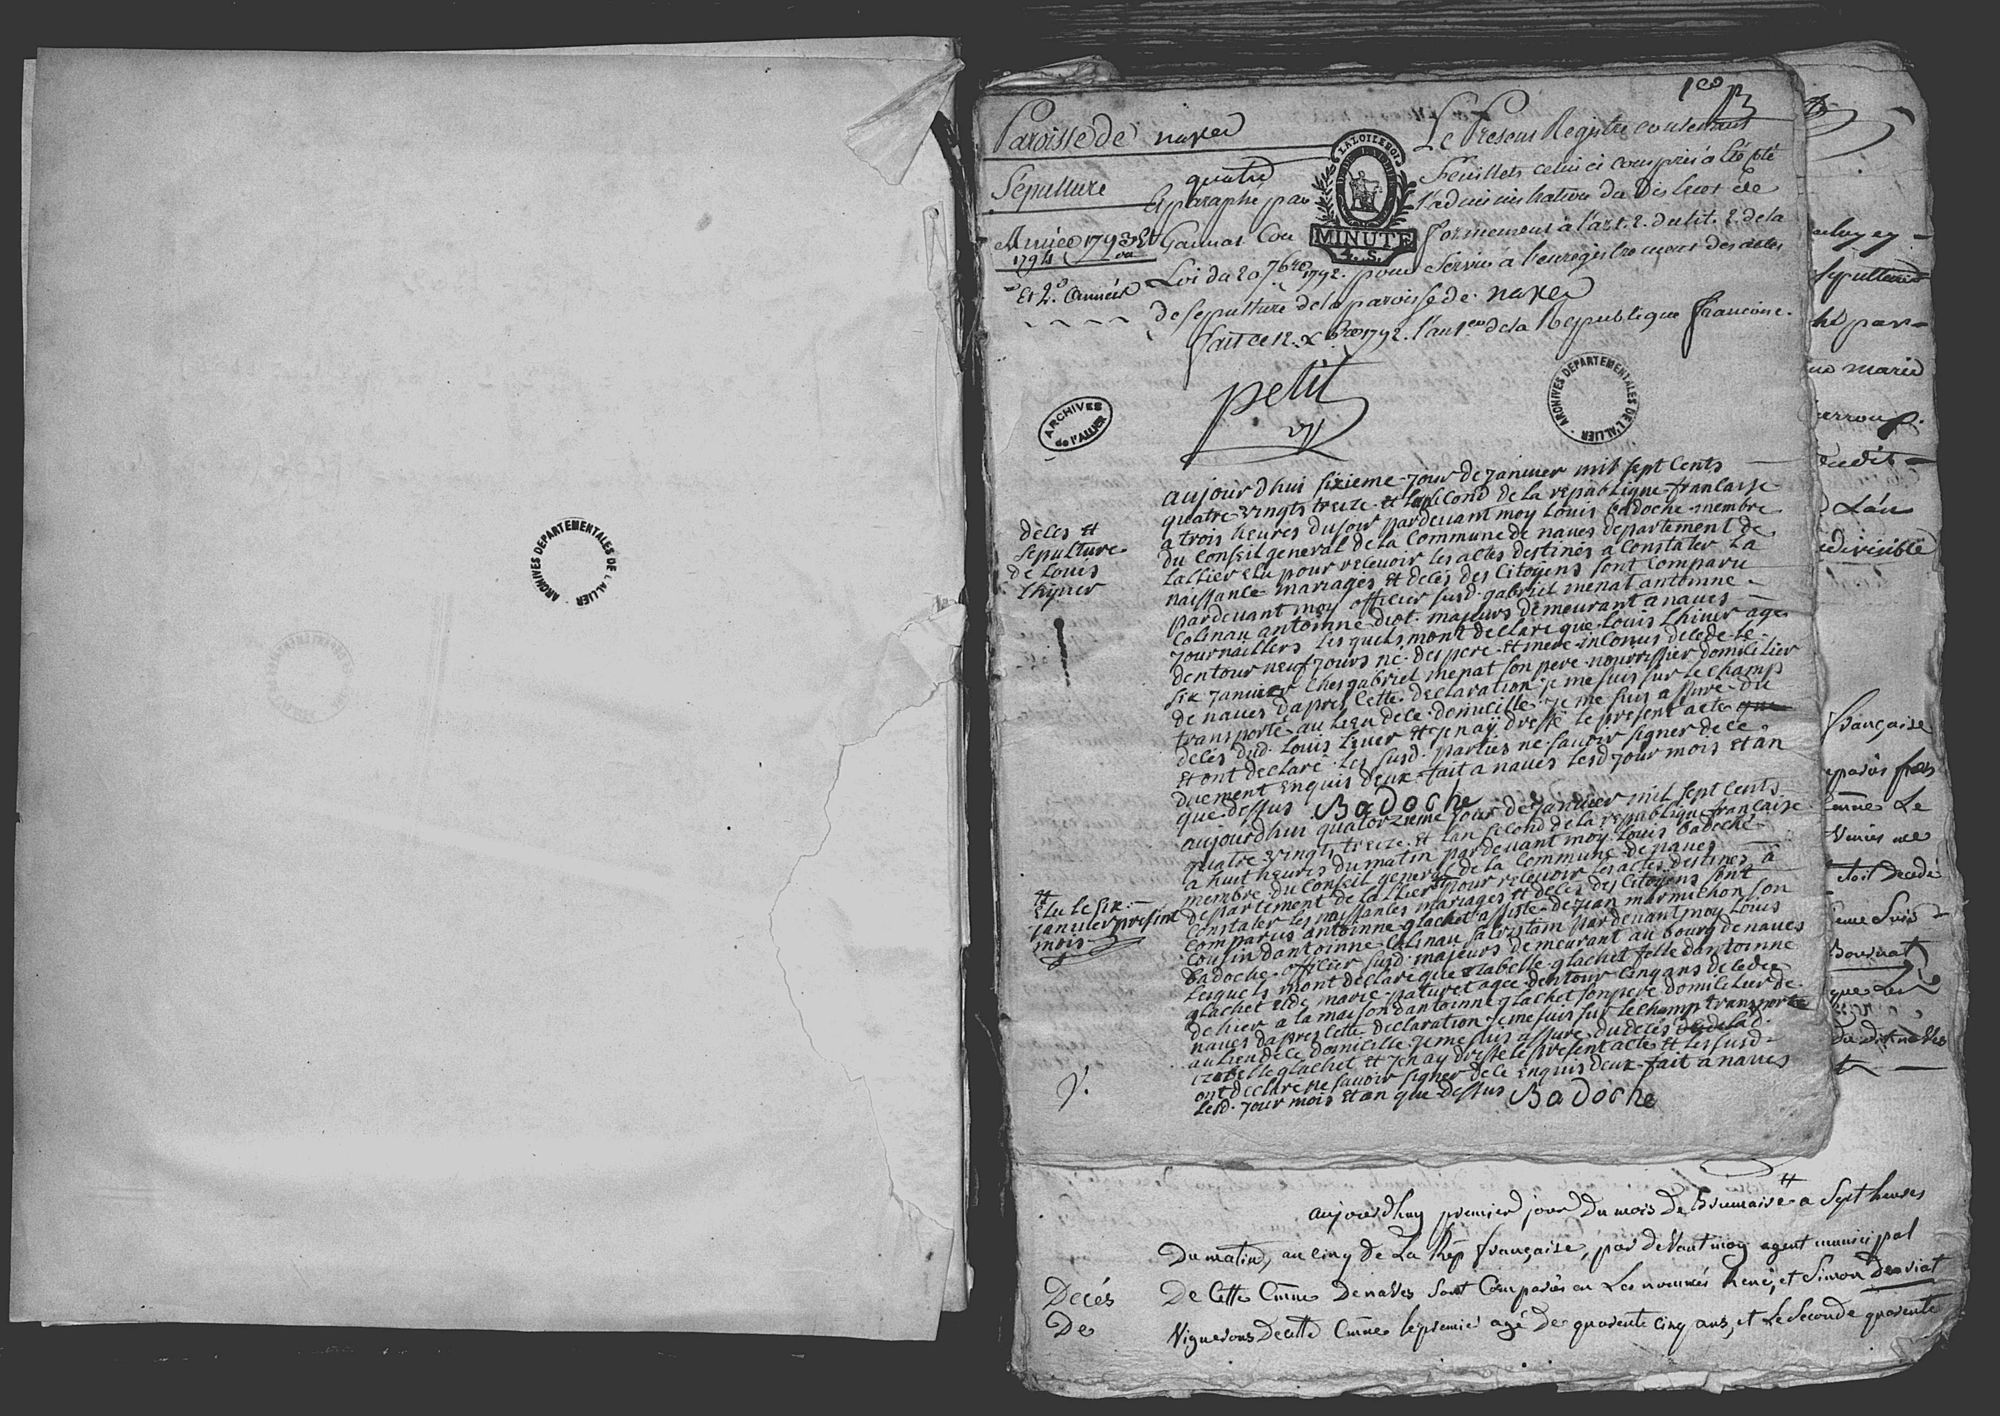 ARCHIVES DEPARTEMENTALES DE L'ALLIER
1er
Paroisse de naves
Sépulture
Année 1793 et
1794
et 2e année
LA LOI LE ROI
MINUTE
4. S.
Le Present Registre contenant
quatre feuillets celui ci compris a été coté
et paraphé par l'administration du District de
Gannat Con formement à l'art. 2. du tit. 2. de la
Loi du 20 7bre 1792. pour servir à l'enregistrement des actes
de sepulture de la paroisse de naves
fait ce 12. Xbre 1792. l'an 1er de la Republique francoise.
petit
ARCHIVES de l'ALLIER
ARCHIVES DEPARTEMENTALES DE L'ALLIER
déces et
sepulture
de Louis
lhyver
aujourdhui sixieme jour de janvier mil sept Cents
quatre vingts treize et lan second de la republique francaise
a trois heures du soir pardevant moy Louis Badoche membre
du Conseil general de la Commune de naves departement de
lallier elu pour recevoir les actes destinés a Constater la
naissance mariages et decés des Citoyens sont Comparu
pardevant moy officier susd. gabriel menat antoinne
Colinau antoinne diot. majeurs demeurant a naves
journalliers lesquels mont declare que Louis lhiver age
dentour neuf jours né des pere et mere inconus decede le
six janvier Ches gabriel menat son pere nourrissier domicilier
de naves dapres Cette declaration je me suis sur le Champs
transporté au lieu de ce domicille je me suis assure du
decés dud. Louis livier et jenay dressé le present acte
et ont declaré les susd. parties ne savoir signer de ce
duement enquis deux fait a naves lesd jour mois et an
que dessus Badoche
aujourdhui quatorzieme jour de janvier mil sept Cents
quatre vingts treize et lan second de la republique francaise
a huit heures du matin pardevant moy Louis badoche
membre du Conseil general de la Commune de naves
departement de lallier # pour recevoir les actes destines a
Constater les naissances mariages et decés des Citoyens sont
Comparus antoinne glachet assisté de jean marmichon son
Cousin dantoinne Colinau sacristain pardevant moy Louis
badoche officier susd. majeurs demeurant au bourg de naves
lesquels mont declare que izabelle glachet fille dantoinne
glachet et de marie paturet agee dentour cinq ans decedee
de hier a la maison dantoinne glachet son pere domicilier de
naves dapres Cette declaration je me suis sur le Champ transporté
au lieu de ce domicille je me suis assure du decés de lad.
izabelle glachet et jenay dressé le present acte et les susd
ont declare ne savoir signer de ce enquis deux fait a naves
lesd. jour mois et an que dessus Badoche
# elu le six
janvier present
mois
française
Cmne Le
etoit decedé
que Les
aujourdhuy premier jour du mois de Brumaire # a sept heures
du matin, au cinq de La Rép française, par devant moy agent municipal
De Cette Cmne De naves sont Comparus en Les nommés René, et Simon Desviat
Vignerons De cette Cmne le premier agé de quarente cinq ans, et Le seconde quarente
Decés
De